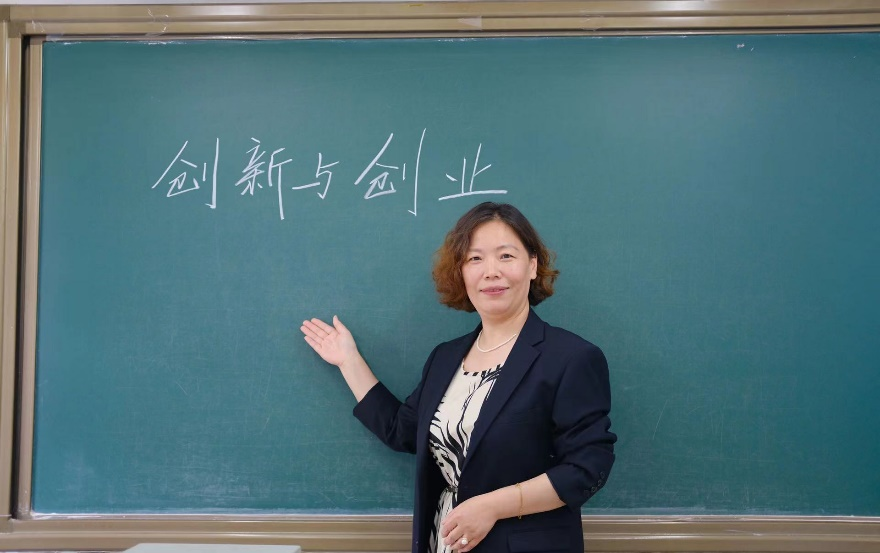 创新与创业